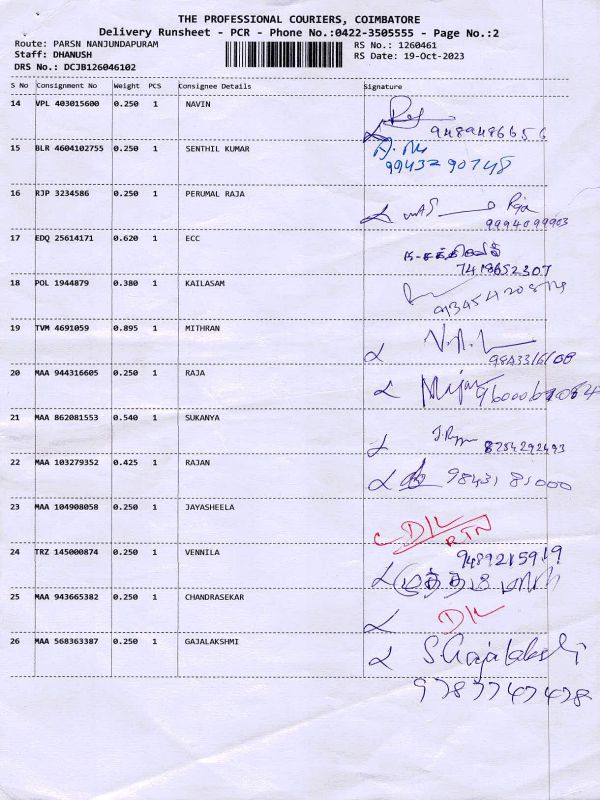 THE PROFESSIONAL COURIERS, COIMBATORE
Delivery Runsheet - PCR - Phone No.:0422-3505555 - Page No.:2
Route: PARSN NANJUNDAPURAM
RS No.: 1260461
Staff: DHANUSH
RS Date: 19-Oct-2023
DRS No.: DCJB126046102
S No Consignment No Weight PCS Consignee Details Signature
14 VPL 403015600 0.250 1 NAVIN
9489486656
15 BLR 4604102755 0.250 1 SENTHIL KUMAR
9943290748
16 RJP 3234586 0.250 1 PERUMAL RAJA
Raja
9994099903
17 EDQ 25614171 0.620 1 ECC
7418652307
18 POL 1944879 0.380 1 KAILASAM
19 TVM 4691059 0.895 1 MITHRAN
20 MAA 944316605 0.250 1 RAJA
21 MAA 862081553 0.540 1 SUKANYA
8254292493
22 MAA 103279352 0.425 1 RAJAN
9843181000
23 MAA 104908058 0.250 1 JAYASHEELA
D/L
RTN
24 TRZ 145000874 0.250 1 VENNILA
9489215919
25 MAA 943665382 0.250 1 CHANDRASEKAR
D/L
26 MAA 568363387 0.250 1 GAJALAKSHMI
9787747478